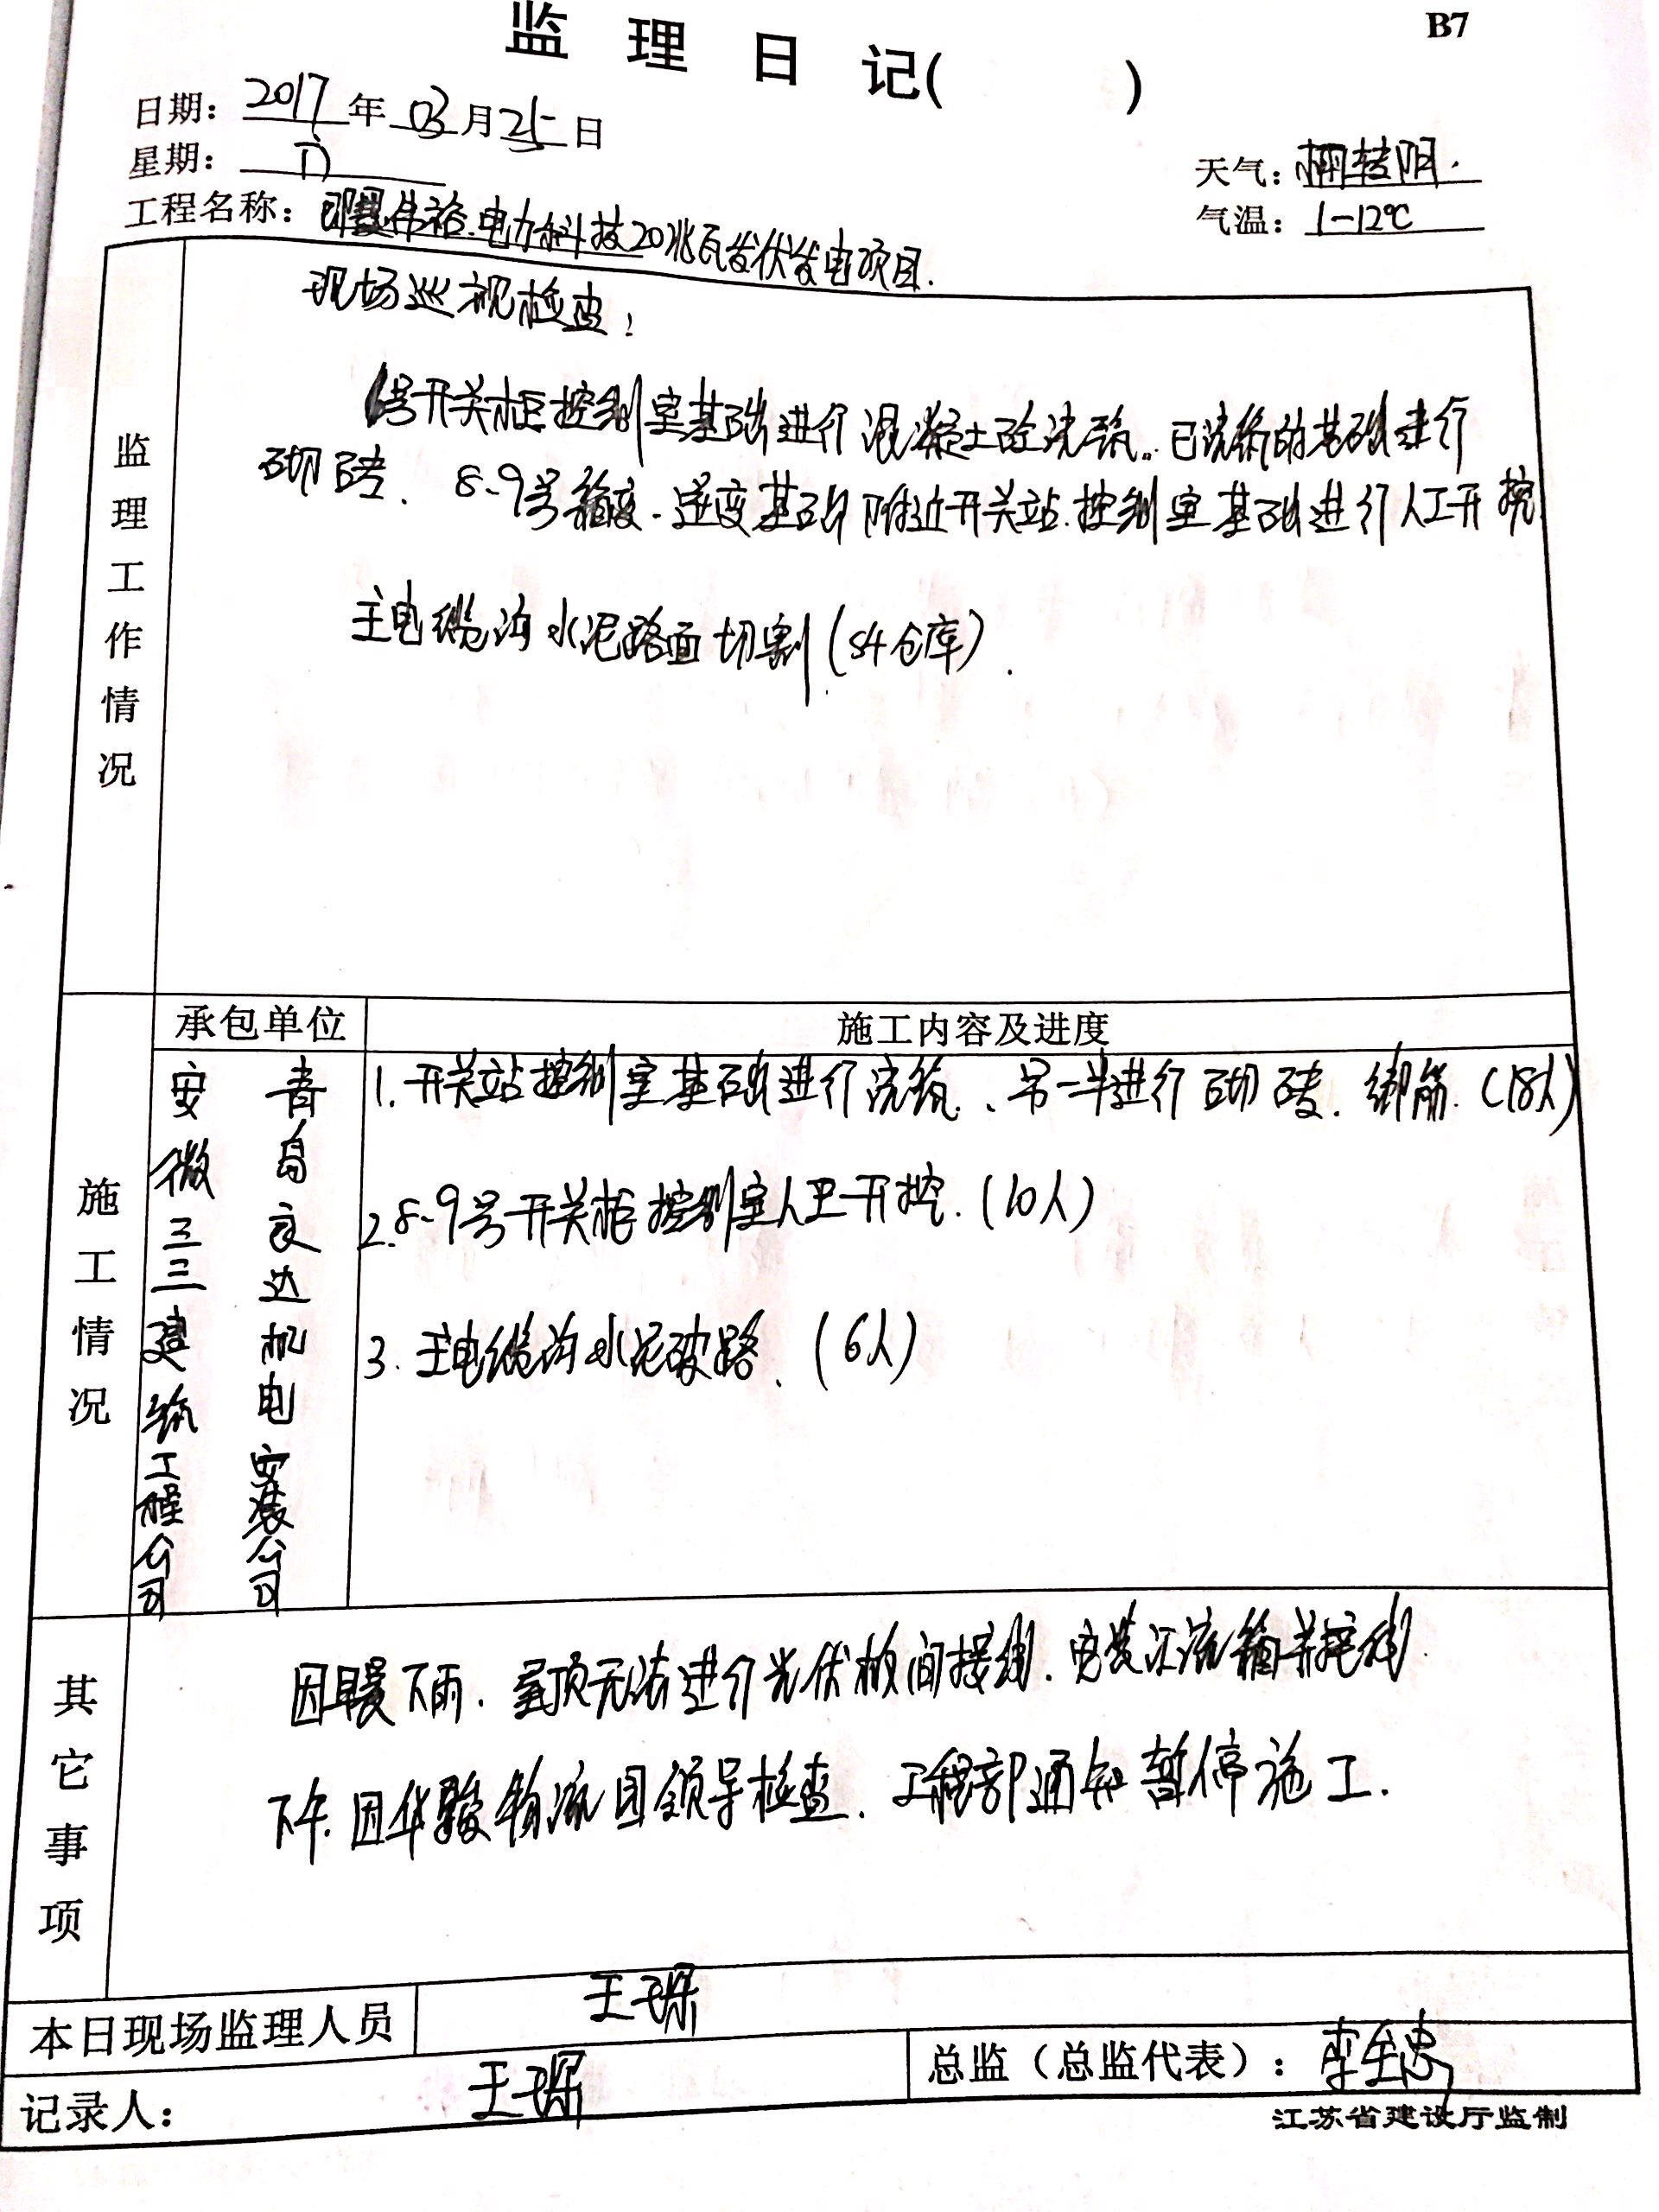 监理日记( )
B7
日期：2017年03月25日
星期：六
天气：雨转阴.
工程名称：伟裕电力科技20兆瓦发伏发电项目.
气温：1-12℃
监理工作情况
现场巡视检查：
1号开关柜控制室基础进行混凝土砼浇筑.已浇筑的基础进行
砌砖. 8-9号箱变.逆变基础附近开关站.控制室基础进行人工开挖
主电缆沟水泥路面切割(S4仓库).
承包单位
施工内容及进度
施工情况
安徽三三建筑工程公司
青岛安达机电安装公司
1.开关站控制室基础进行浇筑、另一半进行砌砖.绑筋.(18人)
2.8-9号开关柜控制室人工开挖.(10人)
3.主电缆沟水泥破路.(6人)
其它事项
因下雨.屋顶无法进行光伏板间接线.安装汇流箱并接线.
下午.因华骏物流园领导检查.工程部通知暂停施工.
本日现场监理人员
王琛
记录人：王琛
总监（总监代表）：李全忠
江苏省建设厅监制